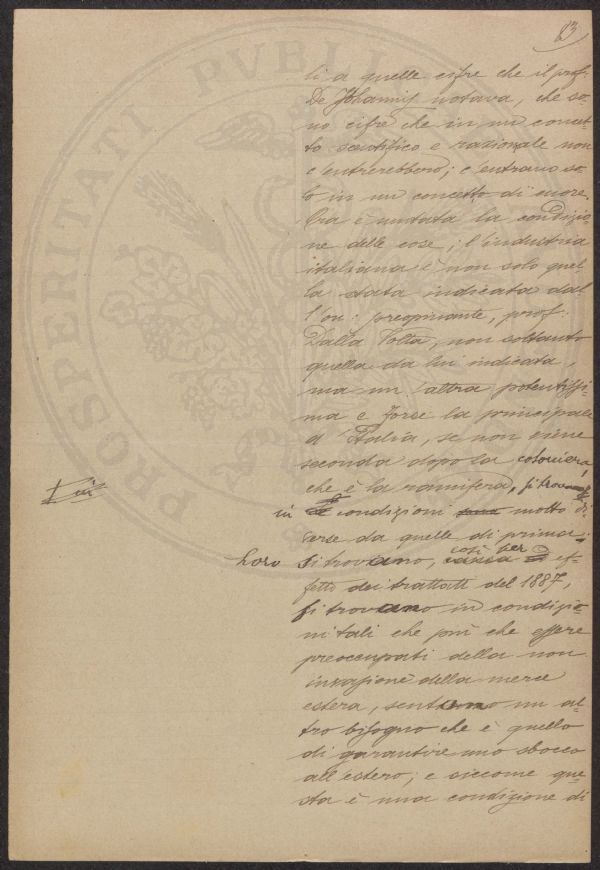 83
li a quelle cifre che il prof.
De Johannis notava, che so-
no cifre che in un concet-
to scentifico e razionale non
c'entrerebbero; c'entrano so-
lo in un concetto di cuore.
Ora è mutata la condizio
ne delle cose; l'industria
italiana è non solo quel-
la stata indicata dal-
l'on: preopinante, prof:
Dalla Volta, non soltanto
quella da lui indicata,
ma un'altra potentissi-
ma e forse la principale
d'Italia, se non viene
seconda dopo la cotoniera,
che è la canapifera, si trovano
in condizioni molto di-
verse da quelle di prima:
Loro si trovano, così per ef-
fetto dei trattati del 1887,
si trovano in condizio
ni tali che più che essere
preoccupati della non
invasione della merce
estera, sentono un al-
tro bisogno che è quello
di garantire uno sbocco
all'estero; e siccome que-
sta è una condizione di
PROSPERITATI PVBLI